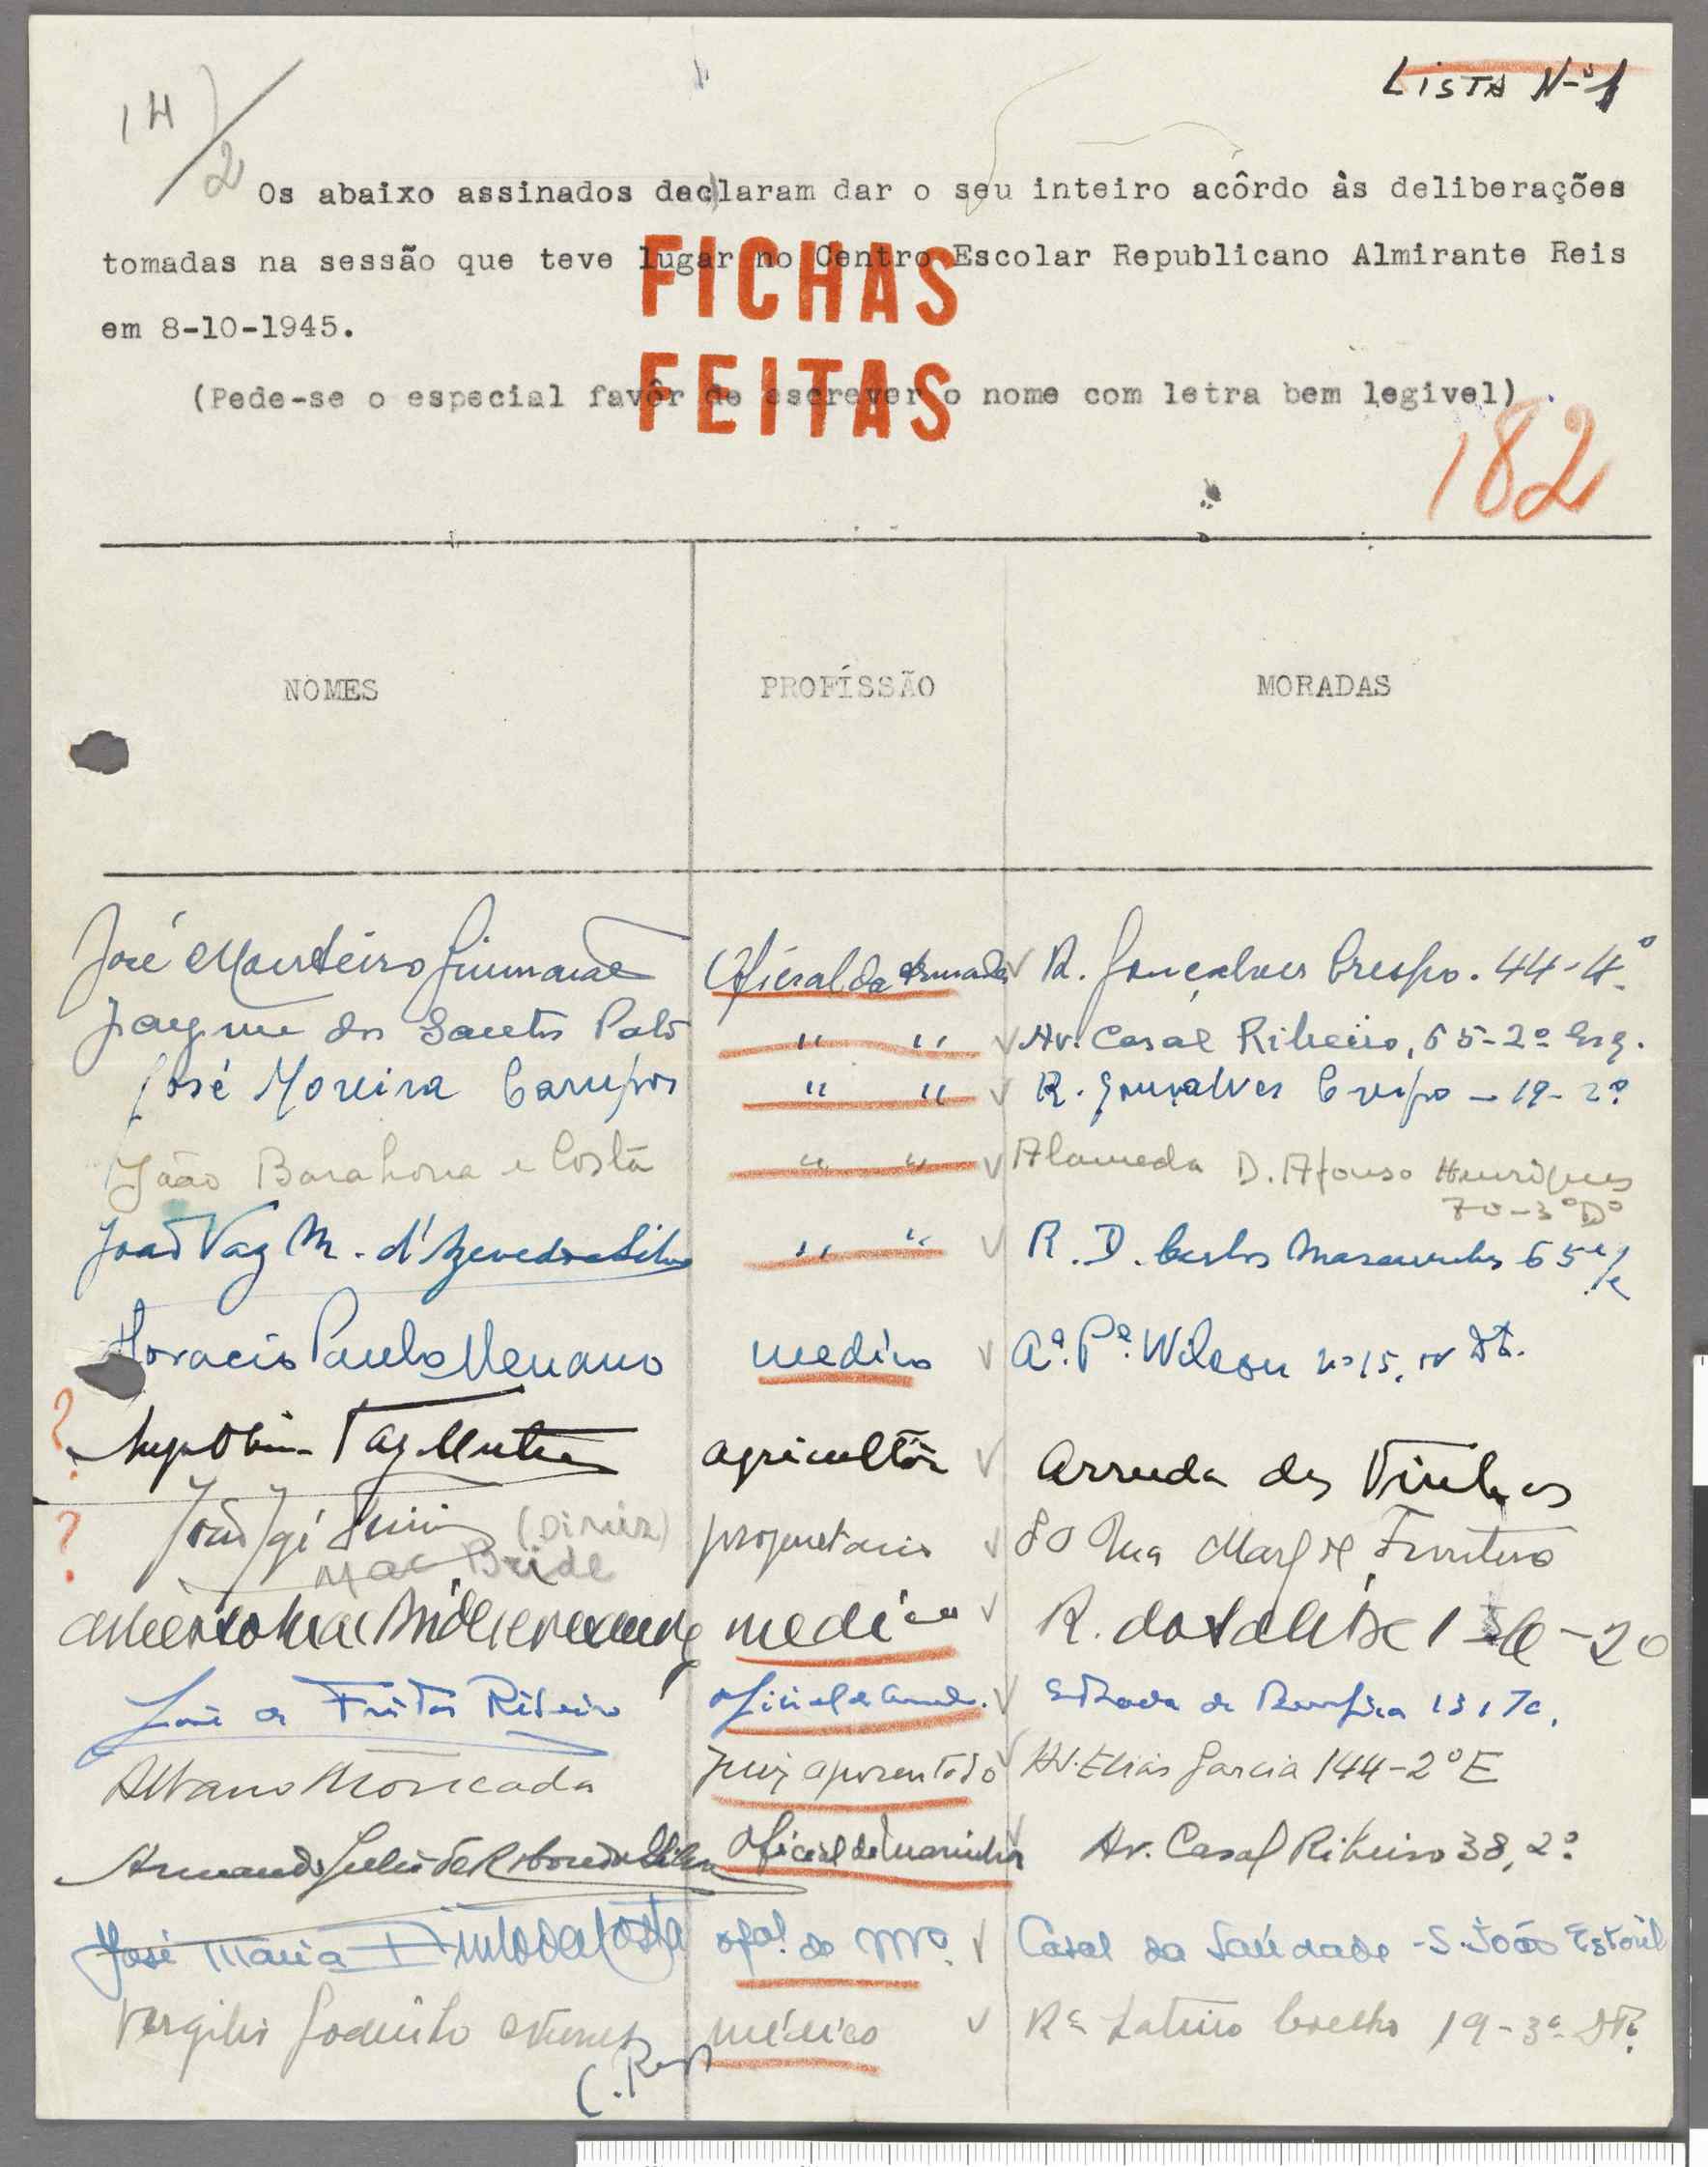 LISTA Nº1
14/2
Os abaixo assinados declaram dar o seu inteiro acôrdo às deliberações
tomadas na sessão que teve lugar no Centro Escolar Republicano Almirante Reis
em 8-10-1945.
FICHAS
FEITAS
(Pede-se o especial favôr de escrever o nome com letra bem legivel).
182
NOMES PROFÍSSÃO MORADAS
José Monteiro Guimarães Oficial da Armada R. Gonçalves Crespo. 44-4º
Jayme dos Santos Pato " " Av. Casal Ribeiro, 65-2º Esq.
José Moreira Campos " " R. Gonçalves Crespo - 19-2º
João Barahona e Costa " " Alameda D. Afonso Henriques
70-3ºDº
João Vaz M. d'Azevedo e Silva " " R. D. Carlos Mascarenhas 65
Horacio Paulo Menano medico Wilson nº 15, Dt.
? Vaz agricultôr Arruda dos Vinhos
? João (Diniz) proprietario 80 Rua Marq de Fronteira
Mac Bride
Alberto Mac Bride medico R. do Salitre
José de Freitas Ribeiro Estrada de Benfica
Albano Moncada juiz aposentado Av. Elias Garcia 144-2ºE
Armando Julio de Reboredo e Silva Oficial de Marinha Av. Casal Ribeiro 38, 2º
José Maria Pinto da Costa Casal da Saúdade - S. João Estoril
Vergilio Godinho Nunes médico Rª Latino Coelho 19-3º Dtº